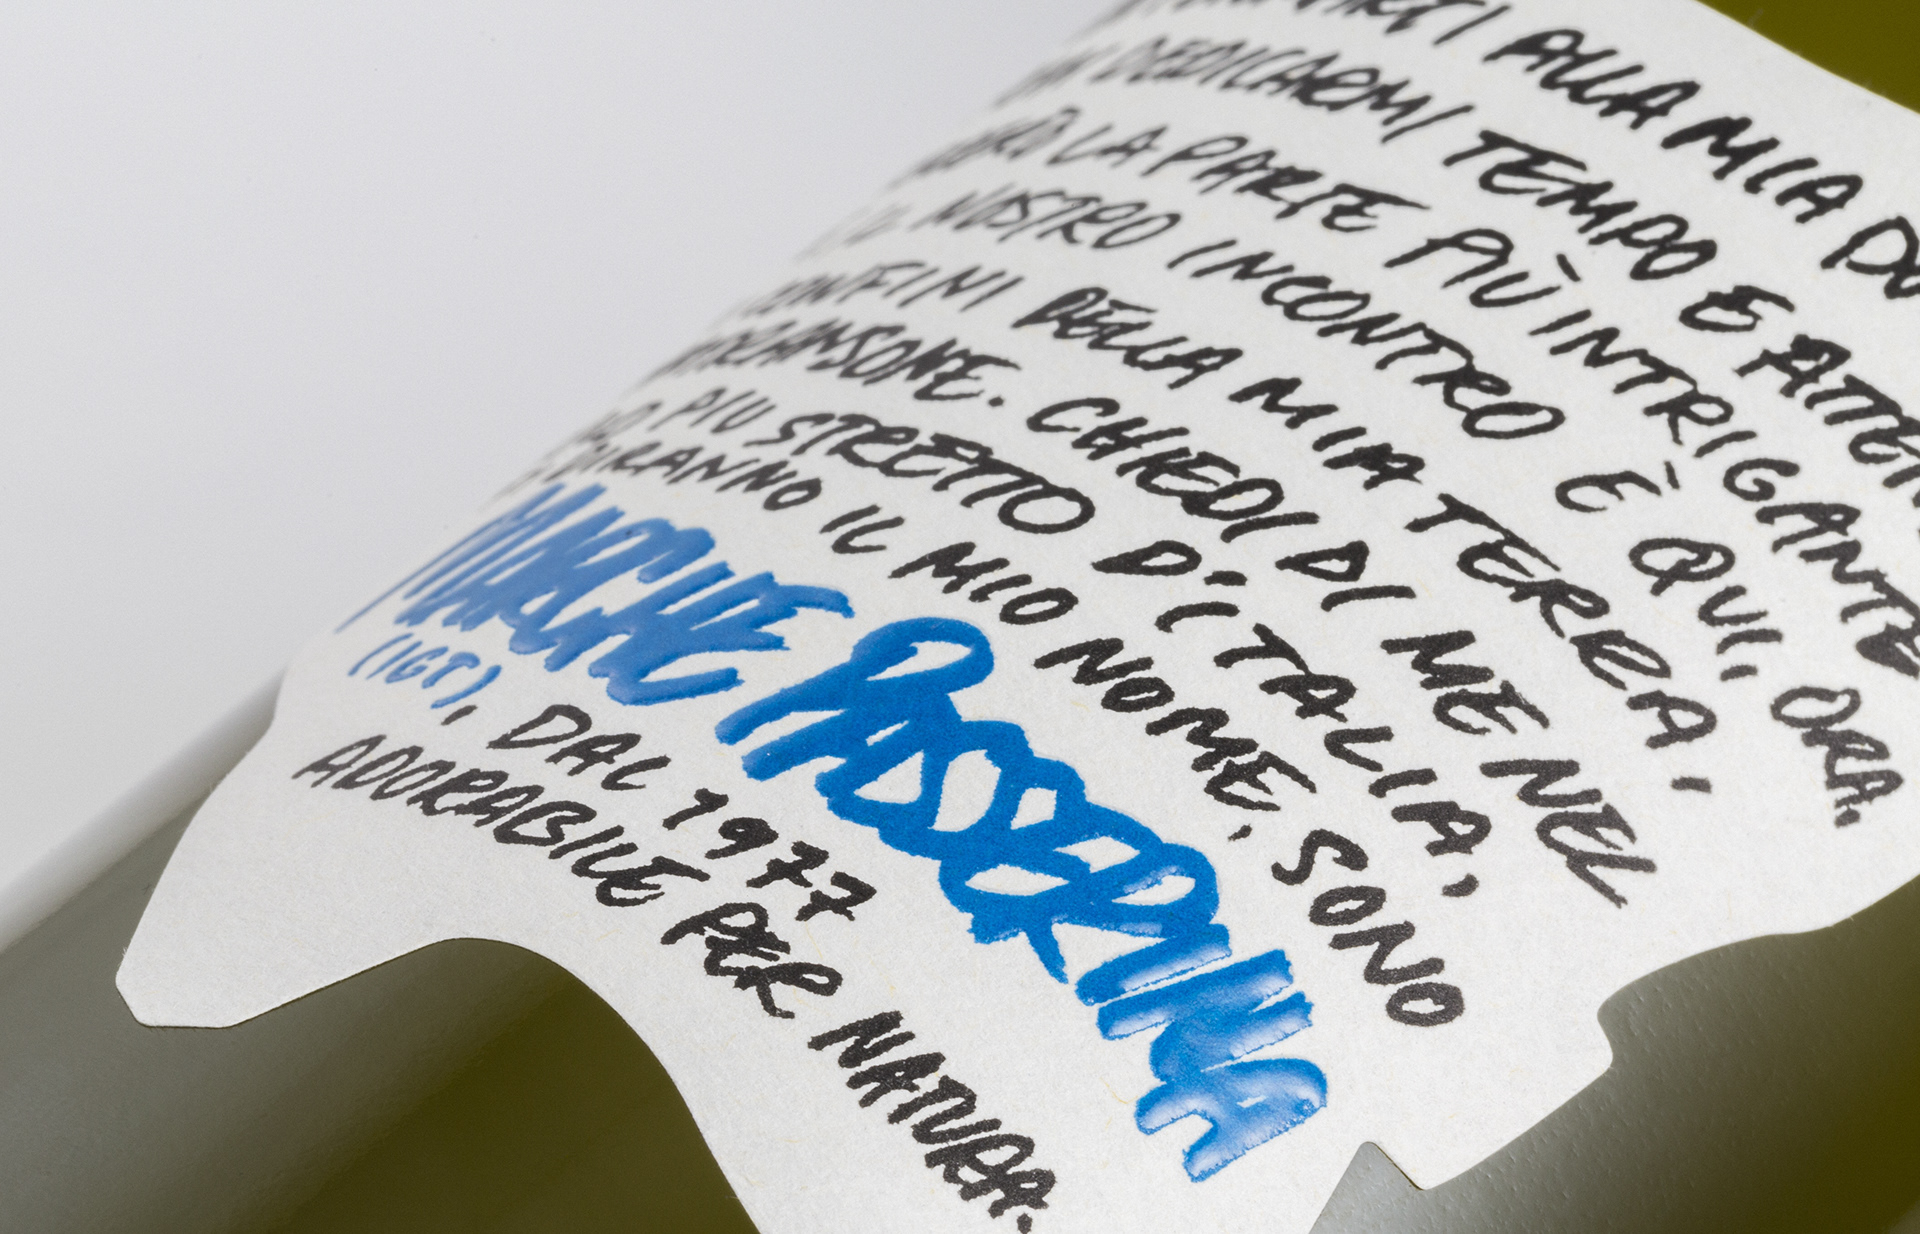 ALLA MIA
DEDICARMI TEMPO E ATTEN
LA PARTE PIÙ INTRIGANTE
IL NOSTRO INCONTRO È QUI, ORA.
CONFINI DELLA MIA TERRA,
CHIEDI DI ME NEL
PIU STRETTO D'ITALIA,
DIRANNO IL MIO NOME, SONO
MARCHE PASSERINA
(IGT), DAL 1977
ADORABILE PER NATURA.